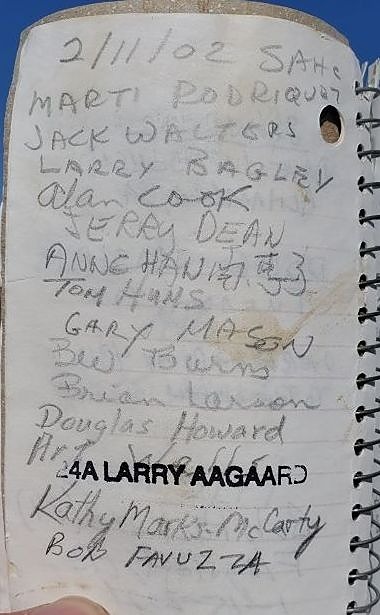 2/11/02 SAHC
MARTI RODRIQUEZ
JACK WALTERS
LARRY BAGLEY
Alan COOK
JERRY DEAN
ANNE HAN
TOM HUMS
GARY MASON
Bev Burns
Brian Larson
Douglas Howard
Art
24A LARRY AAGAARD
Kathy Marks-McCarty
BOB FAVUZZA